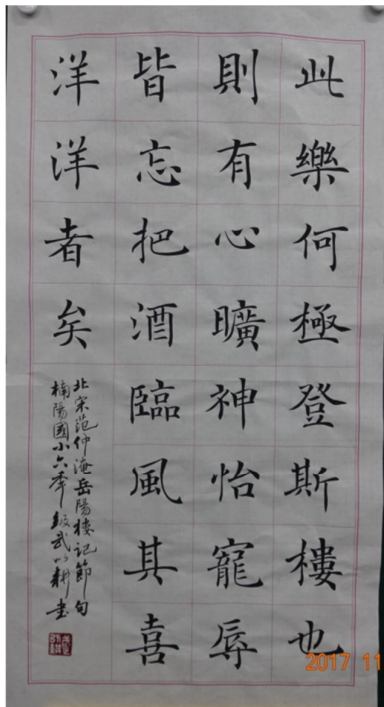 此樂何極登斯樓也
則有心曠神怡寵辱
皆忘把酒臨風其喜
洋洋者矣
北宋范仲淹岳陽樓記節句
楠陽國小六年級武以耕書
2017 11